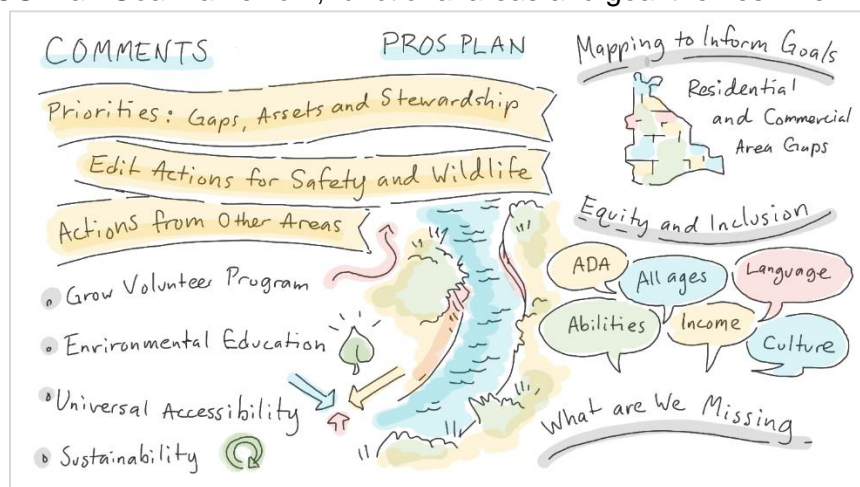 COMMENTS
PROS PLAN
Priorities: Gaps, Assets and Stewardship
Edit Actions for Safety and Wildlife
Actions from Other Areas
Grow Volunteer Program
Environmental Education
Universal Accessibility
Sustainability
Mapping to Inform Goals
Residential
and Commercial
Area Gaps
Equity and Inclusion
ADA
All ages
Language
Abilities
Income
Culture
What are We Missing